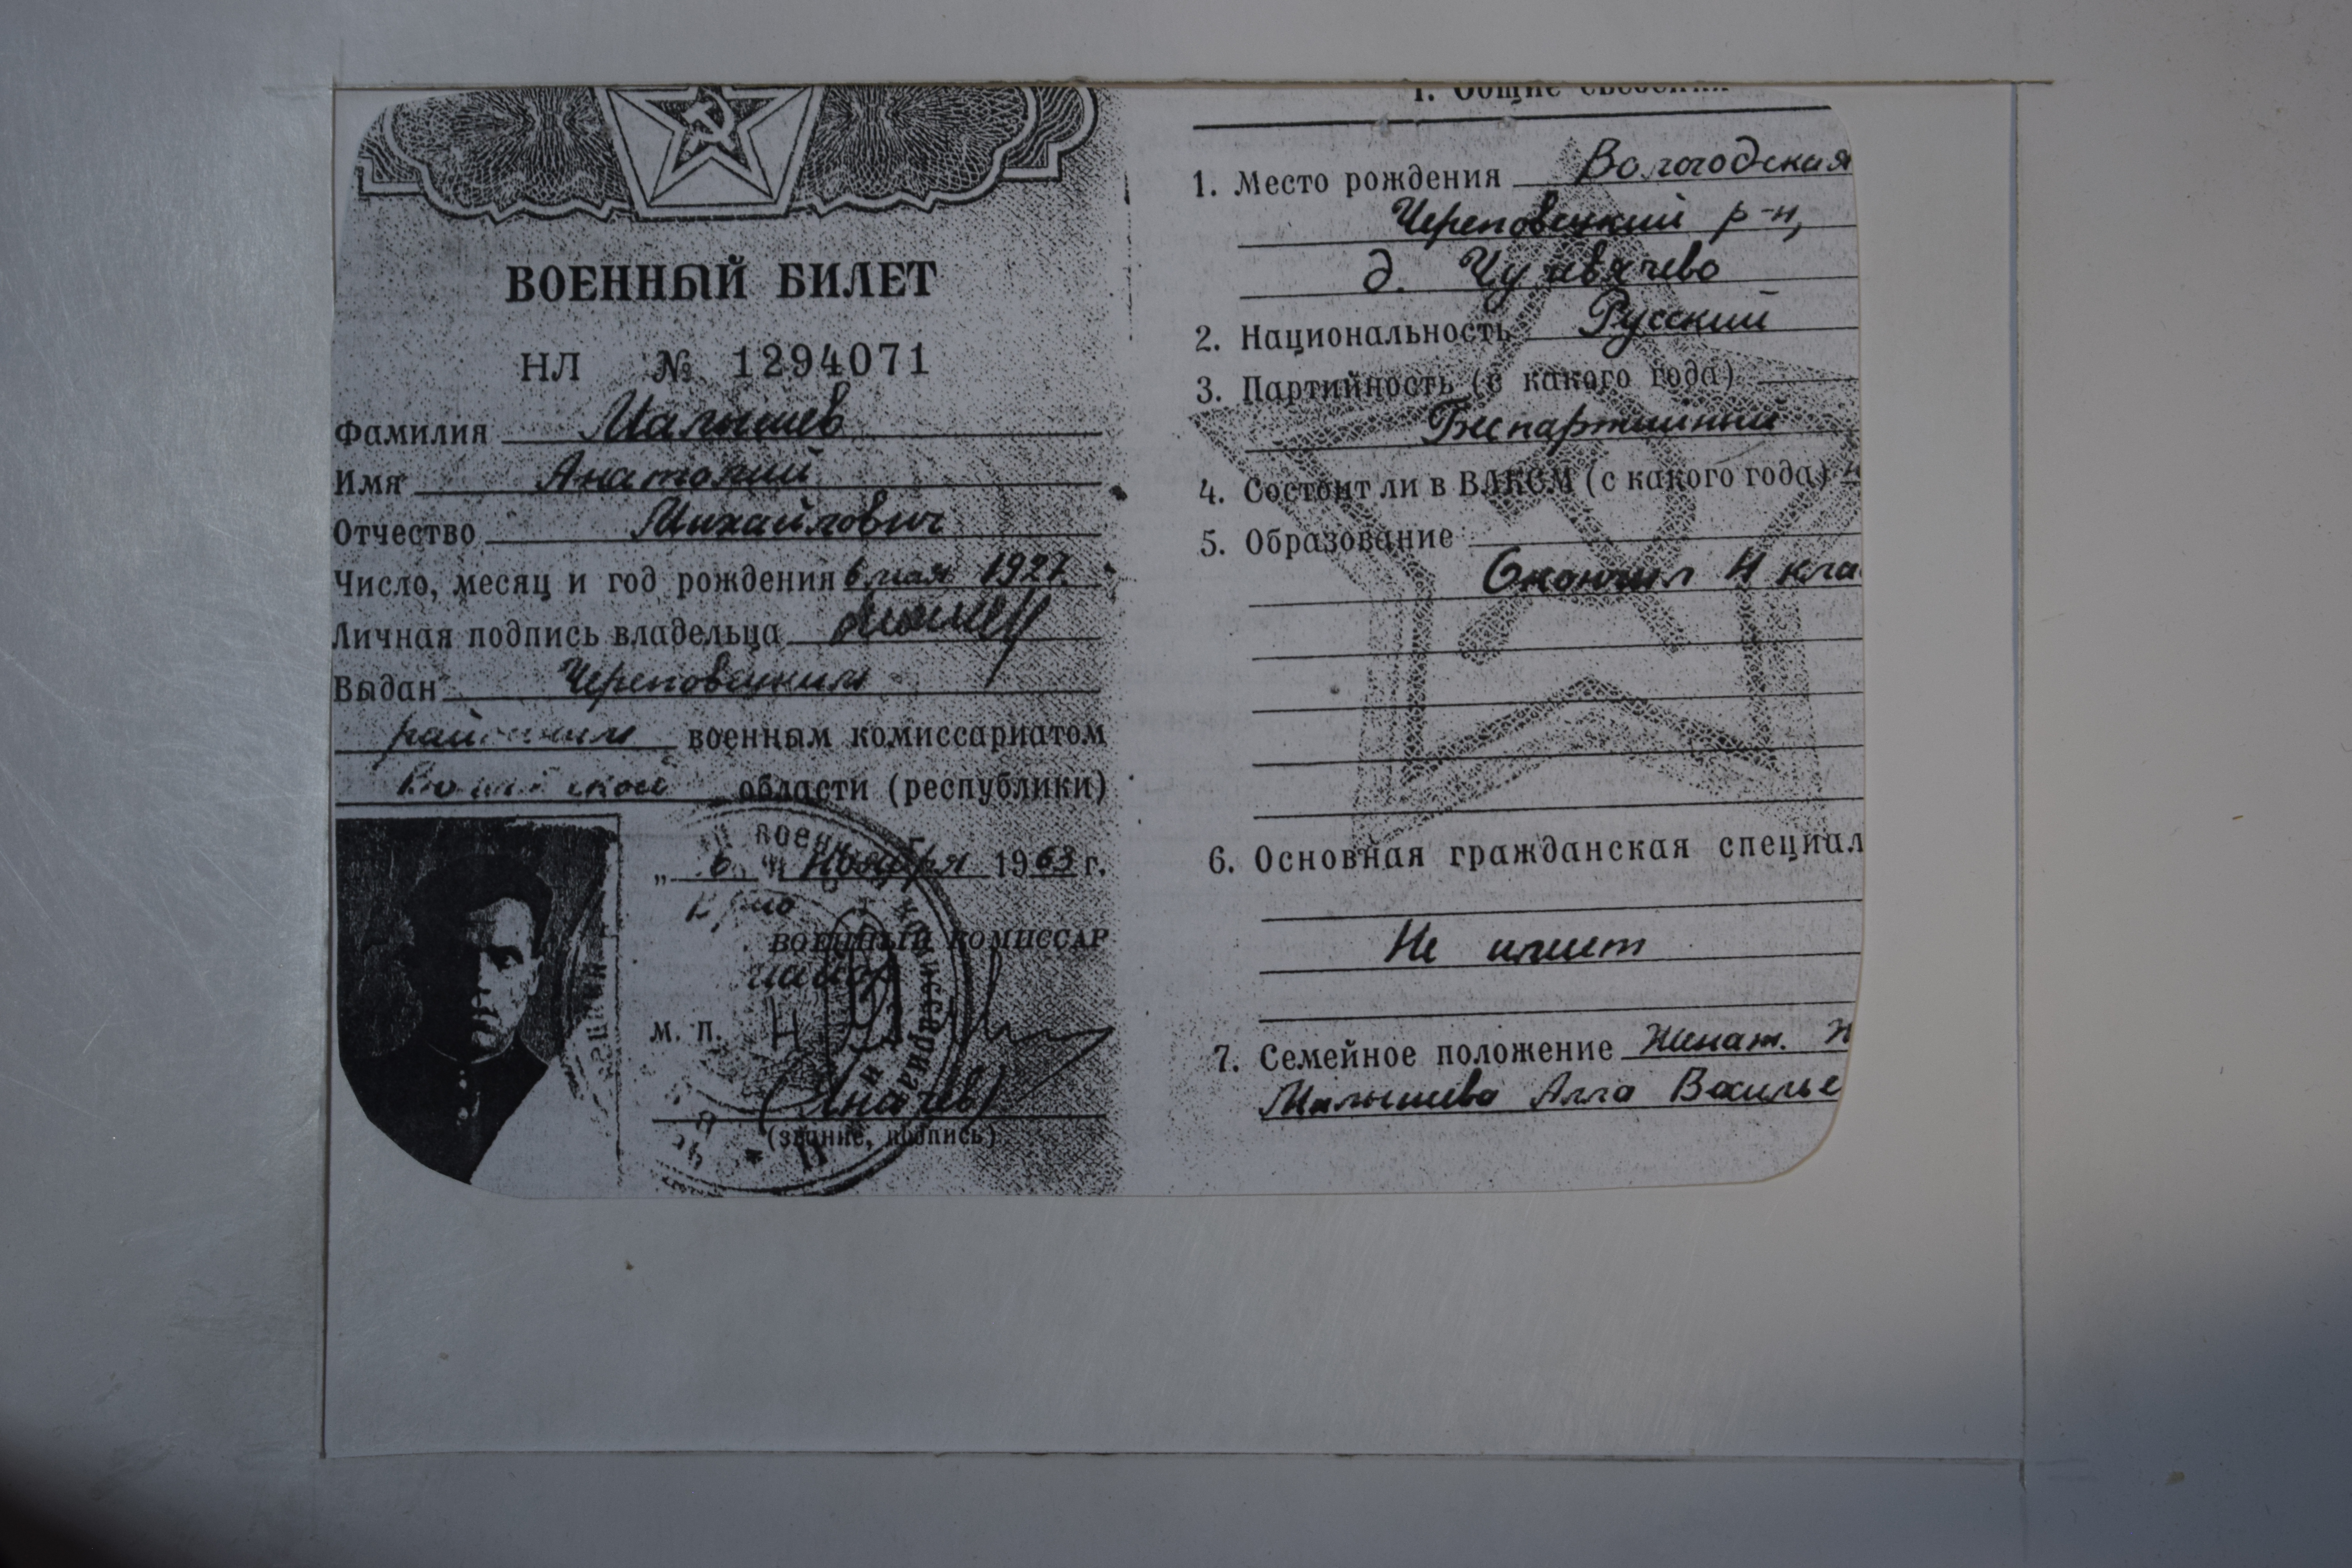 ВОЕННЫЙ БИЛЕТ
НЛ № 1294071
Фамилия Малышев
Имя Анатолий
Отчество Михайлович
Число, месяц и год рождения 6 мая 1927.
Личная подпись владельца
Выдан Череповецким
районным военным комиссариатом
области (республики)
„ 6 " Ноября 1963 г.
ВОЕННЫЙ КОМИССАР
майор
М. П.
(звание, подпись)
I. Общие сведения
1. Место рождения Вологодская
Череповецкий р-н,
д.
2. Национальность Русский
3. Партийность (с какого года)
Беспартийный
4. Состоит ли в ВЛКСМ (с какого года)
5. Образование
Окончил 4 кла
6. Основная гражданская специал
Не имеет
7. Семейное положение Женат. Ж
Малышева Алла Василье